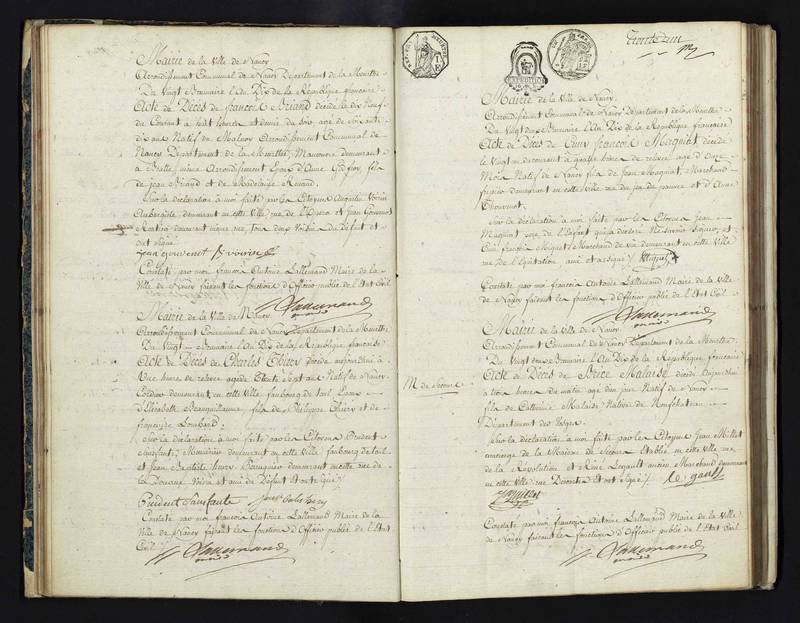 Mairie de la Ville de Nancy
Arrondissement Communal de Nancy Departement de la Meurthe
Du Vingt Brumaire l'An Dix de la République françoise
Acte de Décès de françois Briand décédé le dix Neuf
du Courant à huit heures et demie du soir, agé de soixante
dix ans Natif de Arrondissement Communal de
Nancy Departement de la Meurthe, Manoeuvre demeurant
à même Arrondissement Epoux d'Anne fils
de jean Briand et de Madelaine Renard.
Sur la déclaration à moi faite par les Citoyens Auguste
Aubergiste demeurant en cette Ville, rue de et jean
demeurant tous deux Voisins du Défunt et
ont signé
Constaté par moi françois Antoine Lallemand Maire de la
Ville de Nancy faisant les fonctions d'Officier public de l'Etat Civil
Lallemand
maire
Mairie de la Ville de Nancy.
Arrondissement Communal de Nancy Departement de la Meurthe
Du Vingt Brumaire l'An Dix de la République françoise
Acte de Décès de Charles Thiery décédé aujourd'hui à
Une heure de relevée agé de Trente Sept ans Natif de Nancy
demeurant en cette Ville faubourg de toul Epoux
d'Elisabeth fils de Philippe Thiery et de
françoise Lombard.
Sur la déclaration à moi faite par les Citoyens Prudent
Sansfaute, Menuisier demeurant en cette Ville faubourg de toul
et Jean Baptiste demeurant en cette rue de
la Douane Voisin et ami du Défunt et ont signé
Prudent Sansfaute
Constaté par moi françois Antoine Lallemand Maire de la
Ville de Nancy faisant les fonctions d'Officier public de l'Etat
Civil Lallemand
maire
Trente un
Mairie de la Ville de Nancy.
Arrondissement Communal de Nancy Departement de la Meurthe
Du Vingt deux Brumaire l'An Dix de la République françoise
Acte de Décès de françois Maquiat décédé
le Vingt un du courant à quatre heures de relevée agé d'onze
Mois Natif de Nancy fils de Jean Maquiat, Marchand
fripier demeurant en cette Ville rue du jeu de paume et d'Anne
Thouvenot.
Sur la déclaration à moi faite par les Citoyens jean
Maquiat pere de l'enfant qui a déclaré ne savoir signer, et
françois Miquet Marchand de Vin demeurant en cette Ville
rue de l'Equitation, ami et a signé
Constaté par moi françois Antoine Lallemand Maire de la Ville
de Nancy faisant les fonctions d'Officier public de l'Etat Civil
Lallemand
maire
Mairie de la Ville de Nancy.
Arrondissement Communal de Nancy Departement de la Meurthe
Du Vingt deux Brumaire l'An Dix de la République françoise
M. de Secours
Acte de Décès de Brice Malaise décédé Aujourd'hui
à trois heures du matin agé d'un jour Natif de Nancy
fils de Catherine Malaise Native de Neufchateau
Département des Vosges.
Sur la déclaration à moi faite par les Citoyens Jean Millet
concierge de la Maison de Secours établie en cette Ville rue
de la Révolution et Réné Legault ancien Marchand demeurant
en cette Ville rue et ont signé le gault
Constaté par moi françois Antoine Lallemand Maire de la Ville
de Nancy faisant les fonctions d'Officier public de l'Etat Civil
Lallemand
maire